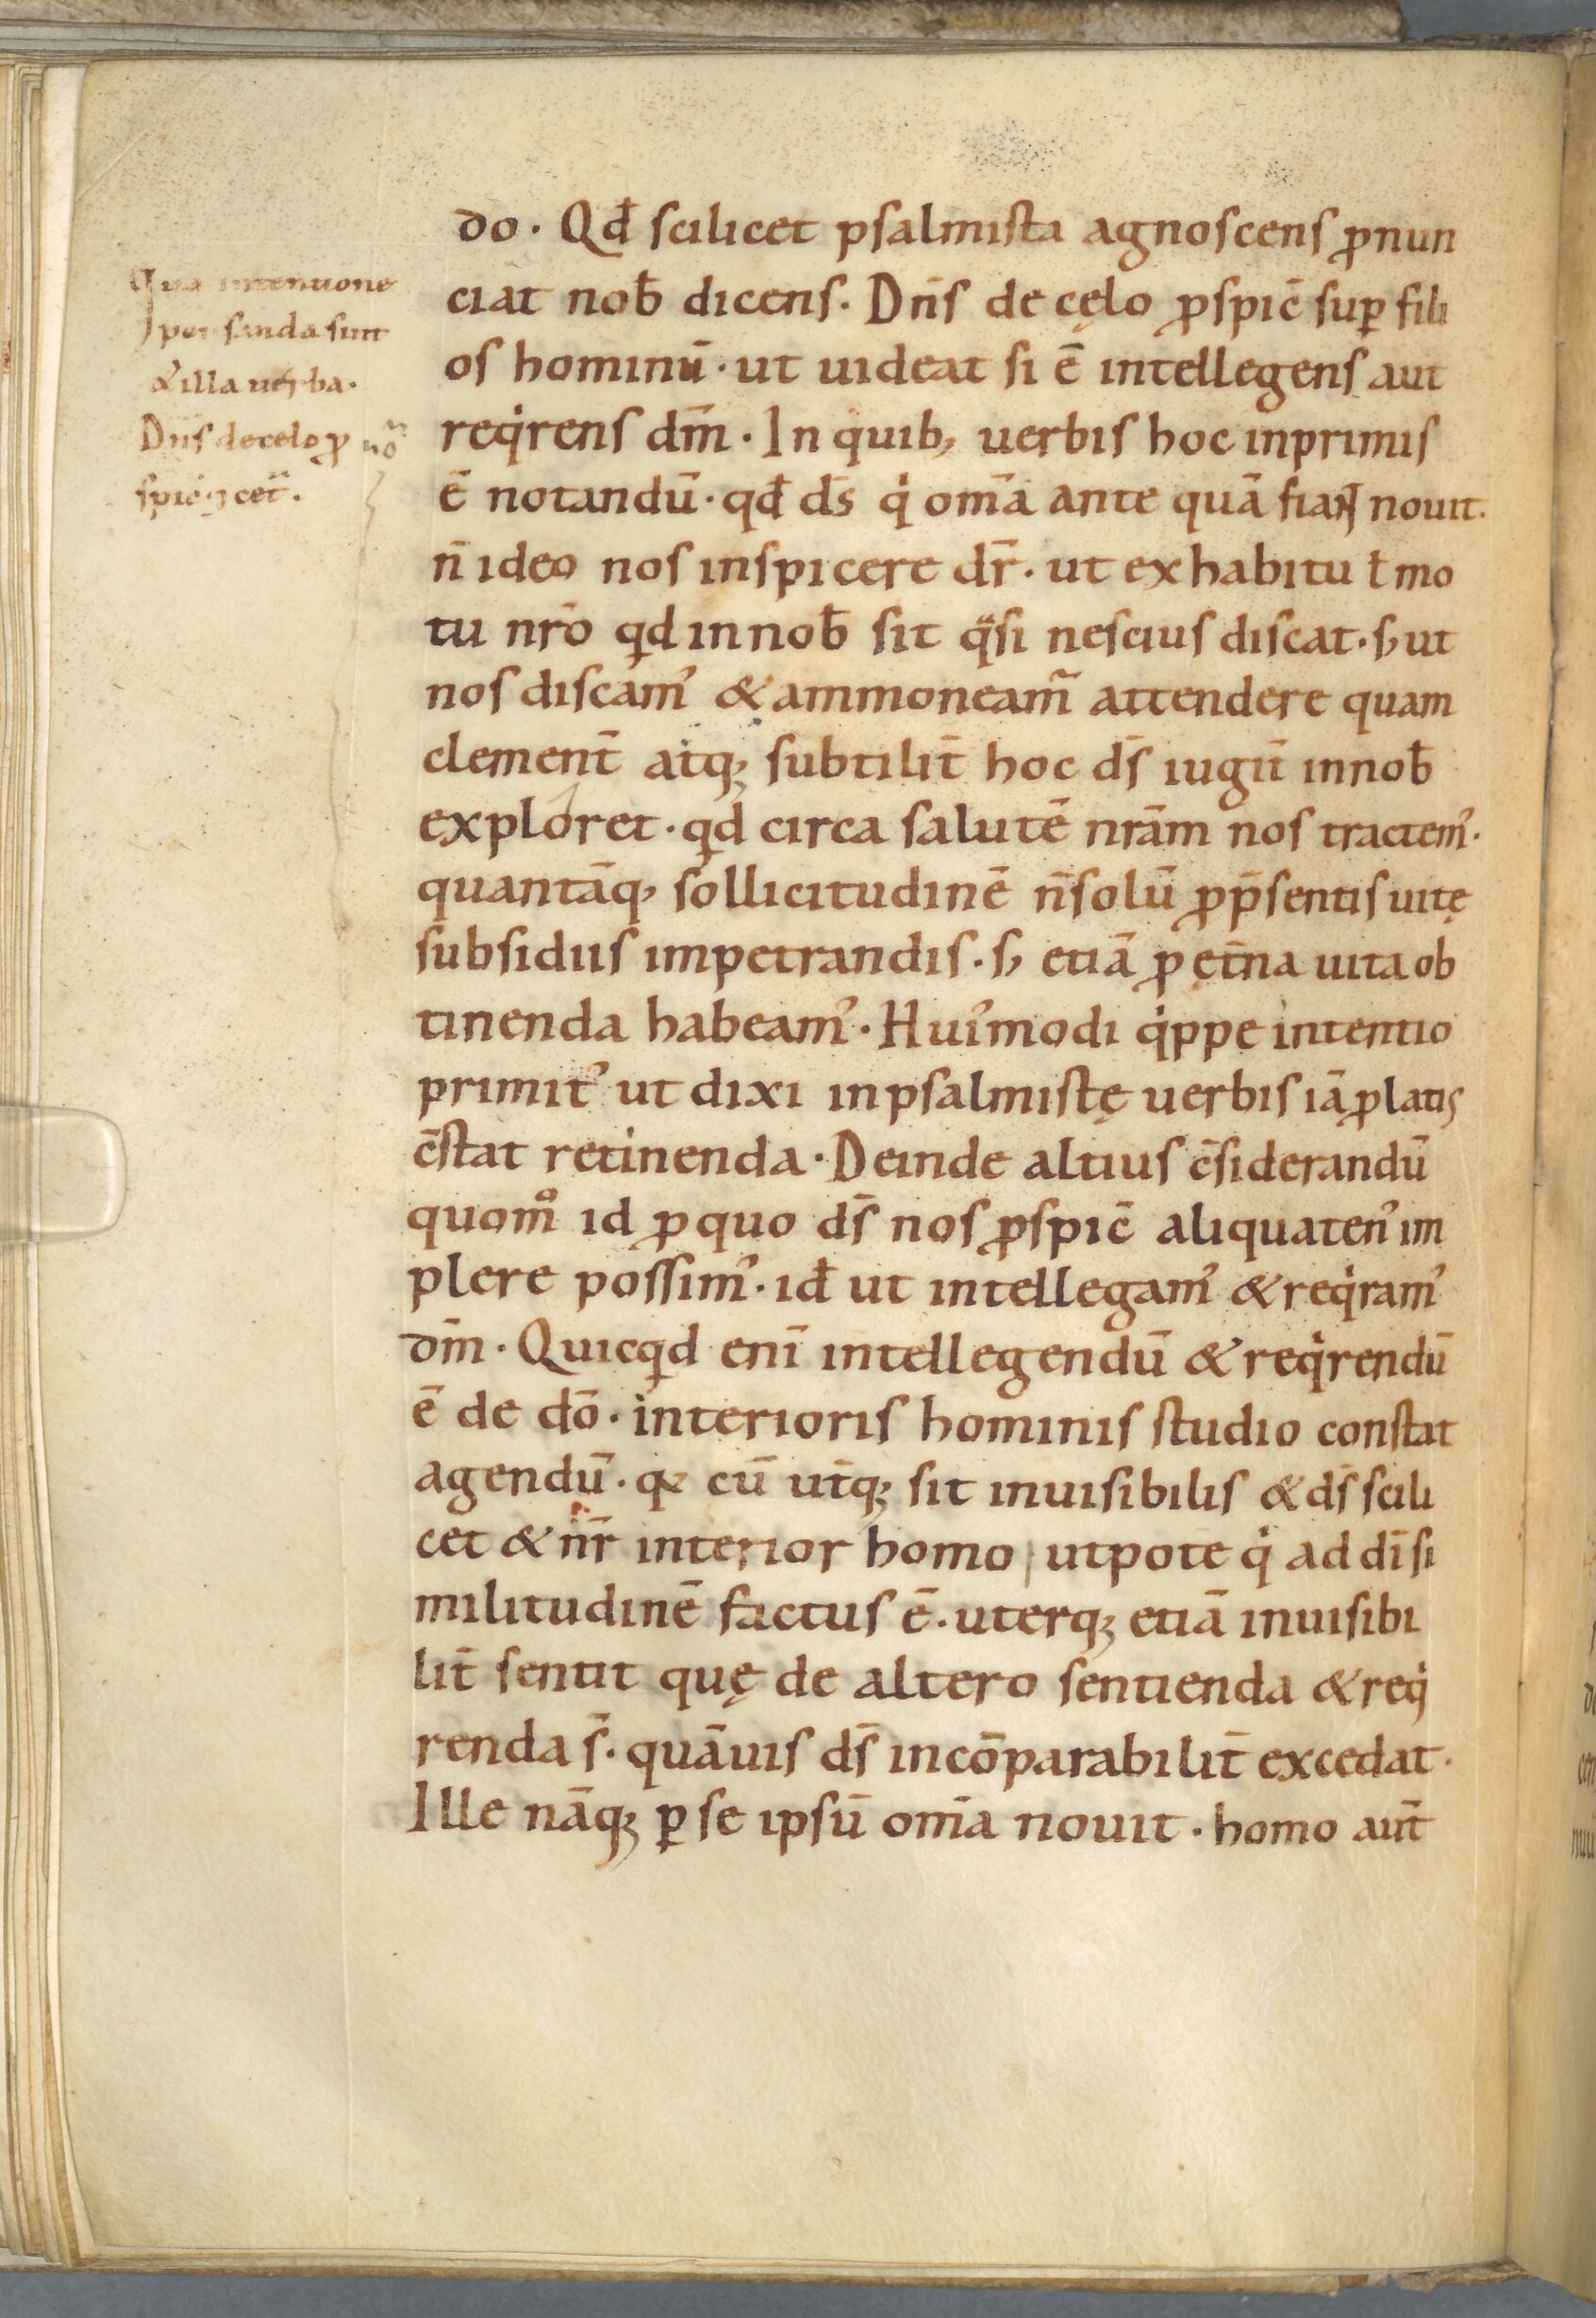 Qua intentione
pensanda sunt
& illa uerba.
Dn̄s de celo ꝓ
spic̄ & cet̄.
no
do. Qđ scilicet psalmista agnoscens ꝓnun
ciat nob̄ dicens. Dn̄s de cęlo ꝓspic̄ suꝑ fili
os hominū. ut uideat si ē intellegens aut
reqͥrens dm̄. In quib; uerbis hoc inprimis
ē notandū. qđ ds̄ qͥ om̄a ante quā fiant nouit.
n̄ ideo nos inspicere dr̄. ut ex habitu ł mo
tu nr̄o qͥd in nob̄ sit qͣsi nescius discat. s; ut
nos discam᾽ & ammoneam̃ attendere quam
clement̄ atq; subtilit̄ hoc ds̄ iugit̄ in nob̄
exploret. qͥd circa salutē nr̄am nos tractem᾽.
quantāq; sollicitudinē n̄ solū ꝓ p̄sentis uitę
subsidiis impetrandis. s; etiā ꝓ ęt̄na uita ob
tinenda habeam᾽. Hui᾽modi qͥppe intentio
primit᾽ ut dixi in psalmistę uerbis iā ꝓlatis
c̄stat retinenda. Deinde altius c̄siderandū
quom̊ id ꝓ quo ds̄ nos ꝓspic̄ aliquaten᾽ im
plere possim᾽. iđ ut intellegam᾽ & reqͥram᾽
dm̄. Quicqͥd eni̅ intellegendū & reqͥrendū
ē de dō. interioris hominis studio constat
agendū. qꝛ cū ut̄q; sit inuisibilis & ds̄ scili
cet & nr̄ interior homo utpote qͥ ad di̅ si
militudinē factus ē. uterq; etiā inuisibi
lit̄ sentit quę de altero sentienda & reqͥ
renda s̄. quāuis ds̄ incōparabilit̄ excedat.
Ille nāq; ꝑ se ipsū om̄a nouit. homo aut̄